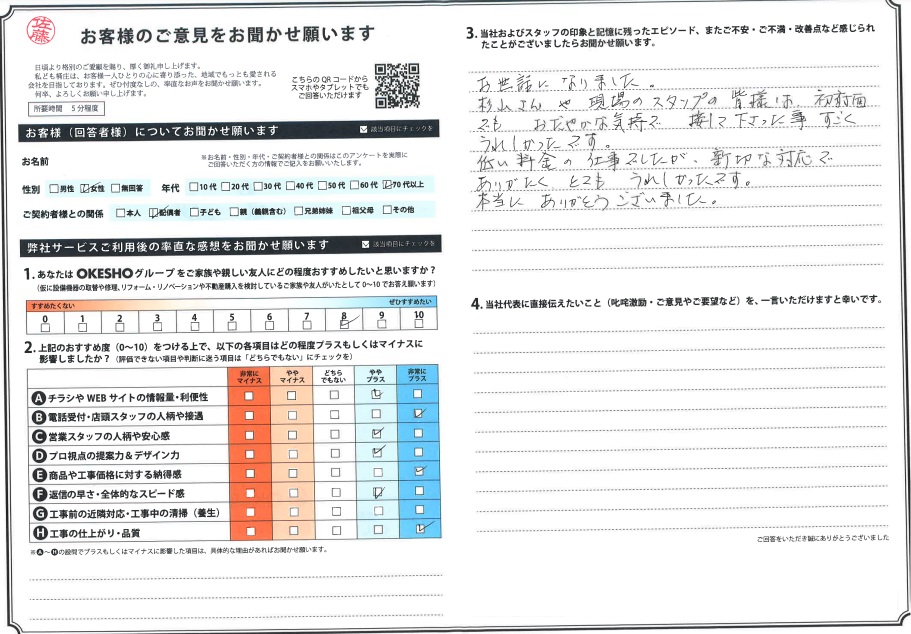 佐藤
お客様のご意見をお聞かせ願います
日頃より格別のご愛顧を賜り、厚く御礼申し上げます。
私ども桶庄は、お客様一人ひとりの心に寄り添った、地域でもっとも愛される
会社を目指しております。ぜひ忖度なしの、率直なお声をお聞かせください。
何卒、よろしくお願い申し上げます。
所要時間 5分程度
こちらのQRコードから
スマホやタブレットでも
ご回答いただけます
お客様(回答者様)についてお聞かせ願います
該当項目にチェックを
お名前
※お名前・性別・年代・ご契約者様との関係はこのアンケートを実際に
ご回答いただく方の情報でご記入をお願いいたします。
性別 男性 女性 無回答 年代 10代 20代 30代 40代 50代 60代 70代以上
ご契約者様との関係 本人 配偶者 子ども 親(義親含む) 兄弟姉妹 祖父母 その他
弊社サービスご利用後の率直な感想をお聞かせ願います
該当項目にチェックを
1. あなたはOKESHOグループをご家族や親しい友人にどの程度おすすめしたいと思いますか?
(仮に設備機器の取替や修理、リフォーム・リノベーションや不動産購入を検討しているご家族や友人がいたとして0〜10でお答え願います)
すすめたくない ぜひすすめたい
0 1 2 3 4 5 6 7 8 9 10
2. 上記のおすすめ度(0〜10)をつける上で、以下の各項目はどの程度プラスもしくはマイナスに
影響しましたか?(評価できない項目や判断に迷う項目は「どちらでもない」にチェックを)
非常にマイナス ややマイナス どちらでもない ややプラス 非常にプラス
A チラシやWEBサイトの情報量・利便性
B 電話受付・店頭スタッフの人柄や接遇
C 営業スタッフの人柄や安心感
D プロ視点の提案力&デザイン力
E 商品や工事価格に対する納得感
F 返信の早さ・全体的なスピード感
G 工事前の近隣対応・工事中の清掃(養生)
H 工事の仕上がり・品質
※A〜Hの設問でプラスもしくはマイナスに影響した項目は、具体的な理由があればお聞かせ願います。
3. 当社およびスタッフの印象と記憶に残ったエピソード、またご不安・ご不満・改善点など感じられ
たことがございましたらお聞かせ願います。
お世話になりました。
杉山さんや現場のスタッフの皆様は、初対面
でも おだやかな気持で 接して下さった事 すごく
うれしかったです。
低い料金の仕事でしたが、親切な対応で
ありがたく とても うれしかったです。
本当に ありがとうございました。
4. 当社代表に直接伝えたいこと(叱咤激励・ご意見やご要望など)を、一言いただけますと幸いです。
ご回答をいただき誠にありがとうございました